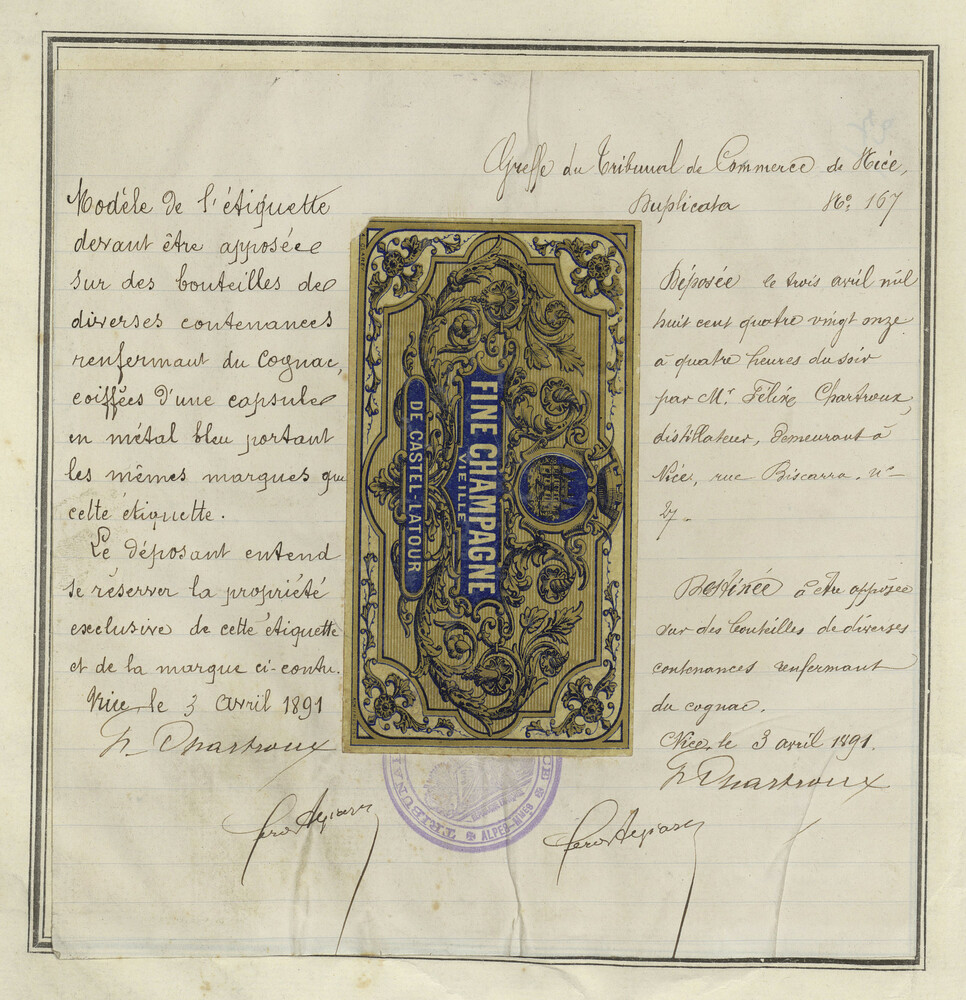 Greffe du Tribunal de Commerce de Nice,
Duplicata No. 167
Modèle de l'étiquette
devant être apposée
sur des bouteilles de
diverses contenances
renfermant du Cognac,
coiffées d'une capsule
en métal bleu portant
les mêmes marques que
cette étiquette.
Le déposant entend
se réserver la propriété
exclusive de cette étiquette
et de la marque ci-contre.
Nice, le 3 avril 1891
F. Chartroux
FINE CHAMPAGNE
VIEILLE
DE CASTEL-LATOUR
Déposée le trois avril mil
huit cent quatre vingt onze
à quatre heures du soir
par Mr. Félix Chartroux,
distillateur, demeurant à
Nice, rue Biscarra, no
27.
Destinée à être apposée
sur des bouteilles de diverses
contenances renfermant
du cognac.
Nice, le 3 avril 1891.
F. Chartroux
TRIBUNAL
ALPES-MMES